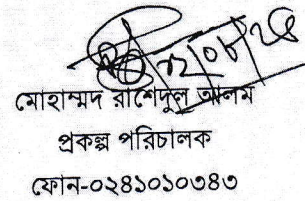 মোহাম্মদ রাশেদুল আলম
প্রকল্প পরিচালক
ফোন-০২৪১০১০৩৪৩